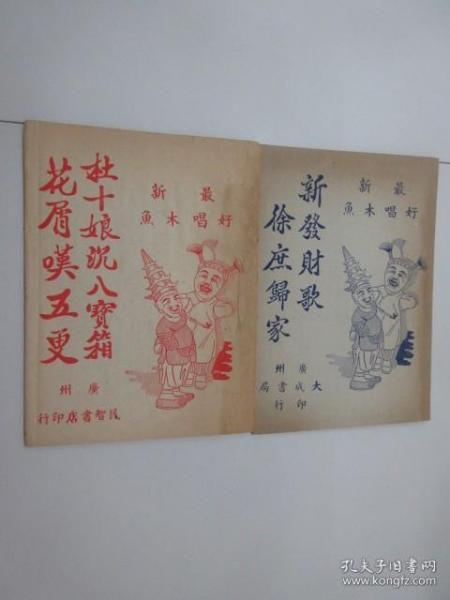 最新
好唱木魚
杜十娘沉八寶箱
花屑嘆五更
廣州
民智書店印行
最新
好唱木魚
新發財歌
徐庶歸家
廣州
大成書局
印行
孔夫子旧书网
www.kongfz.com